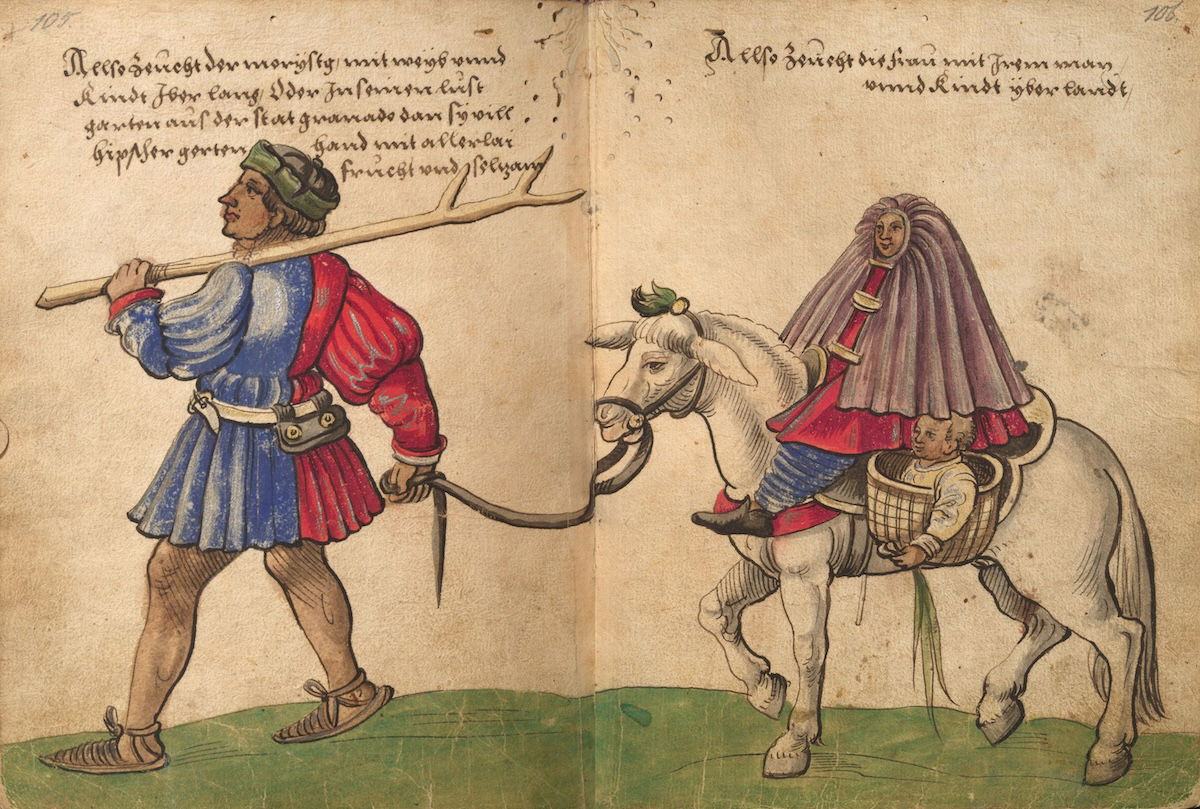 105.
Allso zeücht der moryseg, mit weyb vnnd
Kindt Iber lang, Oder In seinen lust
garten aus der stat granado dan sy vill
hipscher gerten hand mit allerlai
frücht vnd selzam
106.
Allso zeücht die frau mit Irem man
vnnd Kindt yber landt,